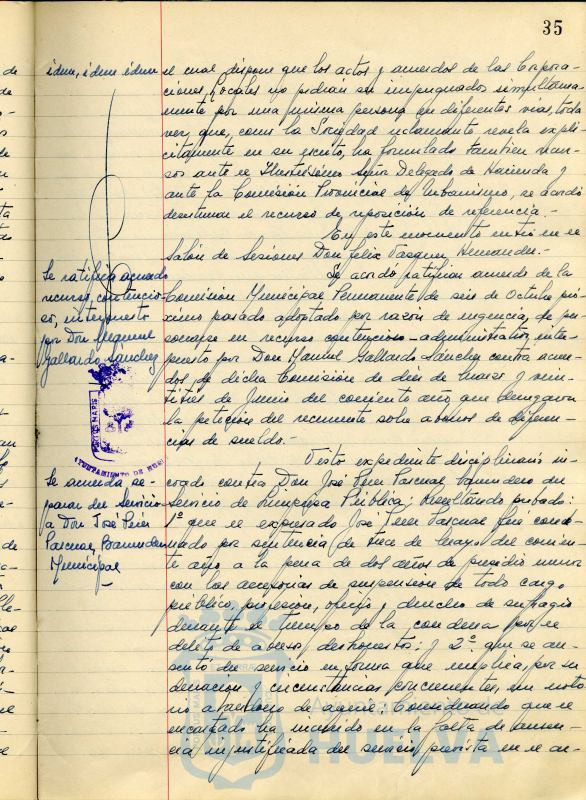 35
idem, idem idem
el cual dispone que los actos y acuerdos de las Corpora-
ciones Locales no podrán ser impugnados simultanea-
mente por una misma persona en diferentes vias, toda
vez que, como la Sociedad reclamante revela expli-
citamente en su escrito, ha formulado tambien recur-
sos ante el Ilustrísimo Señor Delegado de Hacienda y
ante la Comisión Provincial de Urbanismo, se acordó
desestimar el recurso de reposición de referencia.-
En este momento entró en el
Salón de Sesiones Don Felix Vazquez Hernandez.-
Se ratifica acuerdo
recurso contencio-
so, interpuesto
por Don Manuel
Gallardo Sánchez
Se acordó ratificar acuerdo de la
Comisión Municipal Permanente de seis de Octubre pró-
ximo pasado adoptado por razón de urgencia, de per-
sonarse en recurso contencioso-administrativo inter-
puesto por Don Manuel Gallardo Sánchez contra acuer-
dos de dicha Comisión de diez de marzo y vein-
titrés de Junio del corriente año, que denegaron
la petición del recurrente sobre abonos de diferen-
cias de sueldo.-
AYUNTAMIENTO DE
Se acuerda se-
parar del Servicio
a Don José Pérez
Pascual, Barrendero
Municipal
Visto expediente disciplinario in-
coado contra Don José Pérez Pascual, barrendero del
Servicio de Limpieza Pública; Resultando probado:
1º que el expresado José Pérez Pascual fué conde-
nado por sentencia de trece de Mayo del corrien-
te año a la pena de dos años de presidio menor
con las accesorias de suspensión de todo cargo
público, profesión, oficio y derecho de sufragio
durante el tiempo de la condena por el
delito de abusos deshonestos; y 2º que se au-
sentó del servicio en forma que implica, por su
duración y circunstancias concurrentes, un noto-
rio abandono de aquel; Considerando que el
encartado ha incurrido en la falta de ausen-
cia injustificada del servicio prevista en el ar-
HUELVA